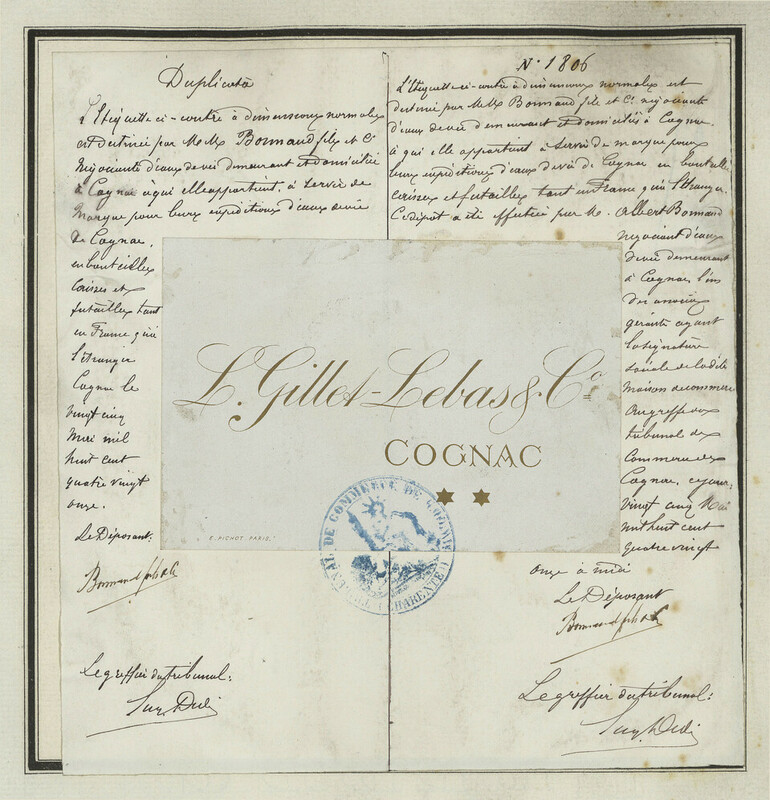 Duplicata
L'Etiquette ci-contre à dimensions normales
est destinée par M.M. Bonnaud fils et Cie
négociants d'eaux de vie demeurant et domiciliés
à Cognac à qui elle appartient, à servir de
marque pour leurs expéditions d'eaux de vie
de Cognac,
en bouteilles
caisses et
futailles tant
en France qu'à
l'étranger
Cognac le
vingt cinq
Mai mil
huit cent
quatre vingt
onze.
Le Déposant.
Bonnaud fils & Cie
Le greffier du tribunal:
N° 1806
L'Etiquette ci-contre à dimensions normales est
destinée par M.M. Bonnaud fils et Cie négociants
d'eaux de vie demeurant et domiciliés à Cognac
à qui elle appartient à servir de marque pour
leurs expéditions d'eaux de vie de Cognac en bouteilles
caisses et futailles tant en France qu'à l'étranger.
Ce dépôt a été effectué par M. Albert Bonnaud
négociant d'eaux
de vie demeurant
à Cognac l'un
des associés
gérants ayant
la signature
sociale de la dite
maison de commerce
au greffe du
tribunal de
Commerce de
Cognac, ce jour
vingt cinq Mai
mil huit cent
quatre vingt
onze à midi
Le Déposant
Bonnaud fils & Cie
Le greffier du tribunal:
L. Gillet-Lebas & Co
COGNAC
E. PICHOT PARIS.
TRIBUNAL DE COMMERCE DE COGNAC
(CHARENTE)